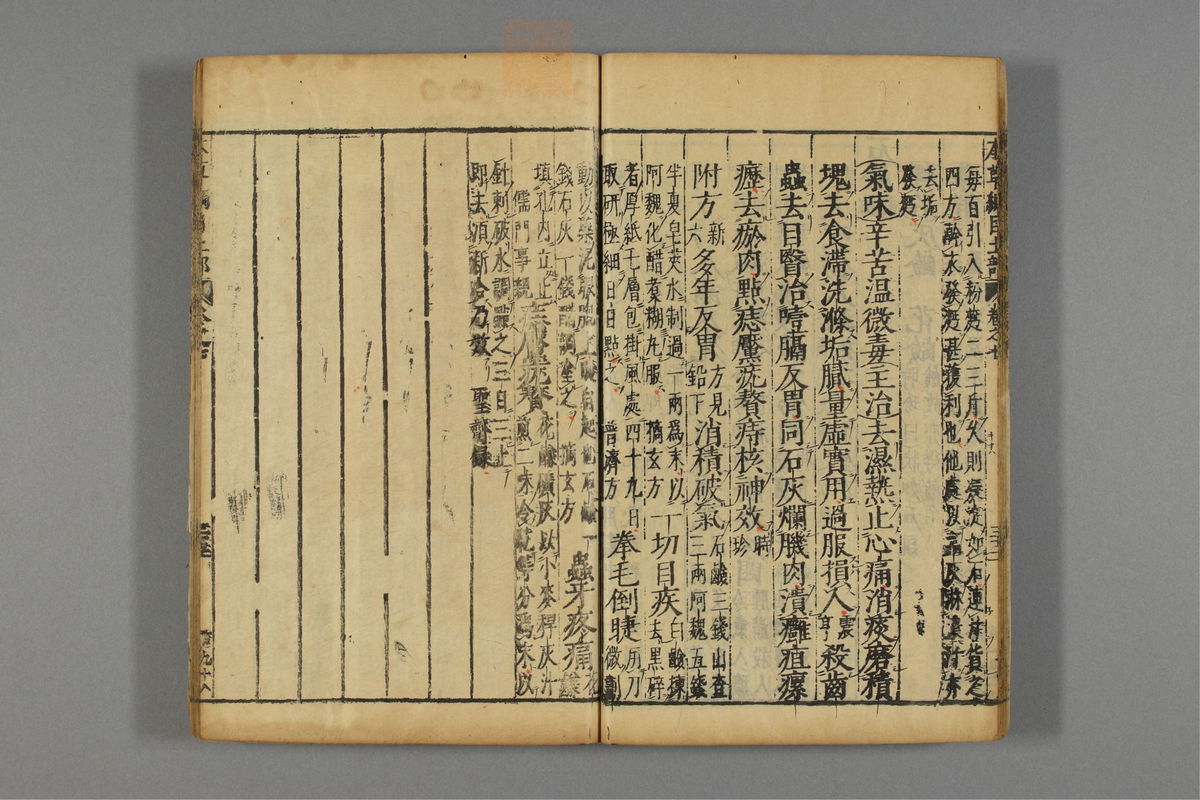 每百引入粉麪二三斤火則凝淀如石連汁貨之
四方澣衣發麪甚獲利也他處以竈灰淋濃汁亦
去垢
發麪
氣味辛苦温微毒主治去濕熱止心痛消痰磨積
塊去食滯洗滌垢膩量虛實用過服損人震亨殺齒
蟲去目瞖治噎膈反胃同石灰爛肌肉潰癰疽瘰
瘰去瘀肉點痣黶疣贅痔核神效時珍
附方新六多年反胃方見鉛下消積破氣石鹼三錢山查
三兩阿魏五錢
半夏皂莢水制過一兩爲末以
阿魏化醋煮糊丸服摘玄方一切目疾白鹼揀
去黑碎
者厚紙七層包掛風處四十九日
取研極細日日點之普濟方拳毛倒睫用刀
微
動以藥泥眼胞上睫自起也石鹼一
錢石灰一錢醋調塗之摘玄方蟲牙疼痛
填孔内立止
儒門事親痣黶疣贅花鹼礦灰以小麥稈灰汁
煎二味令乾等分爲末以
針刺破水調點之三日三上
即去須新合乃效聖濟錄